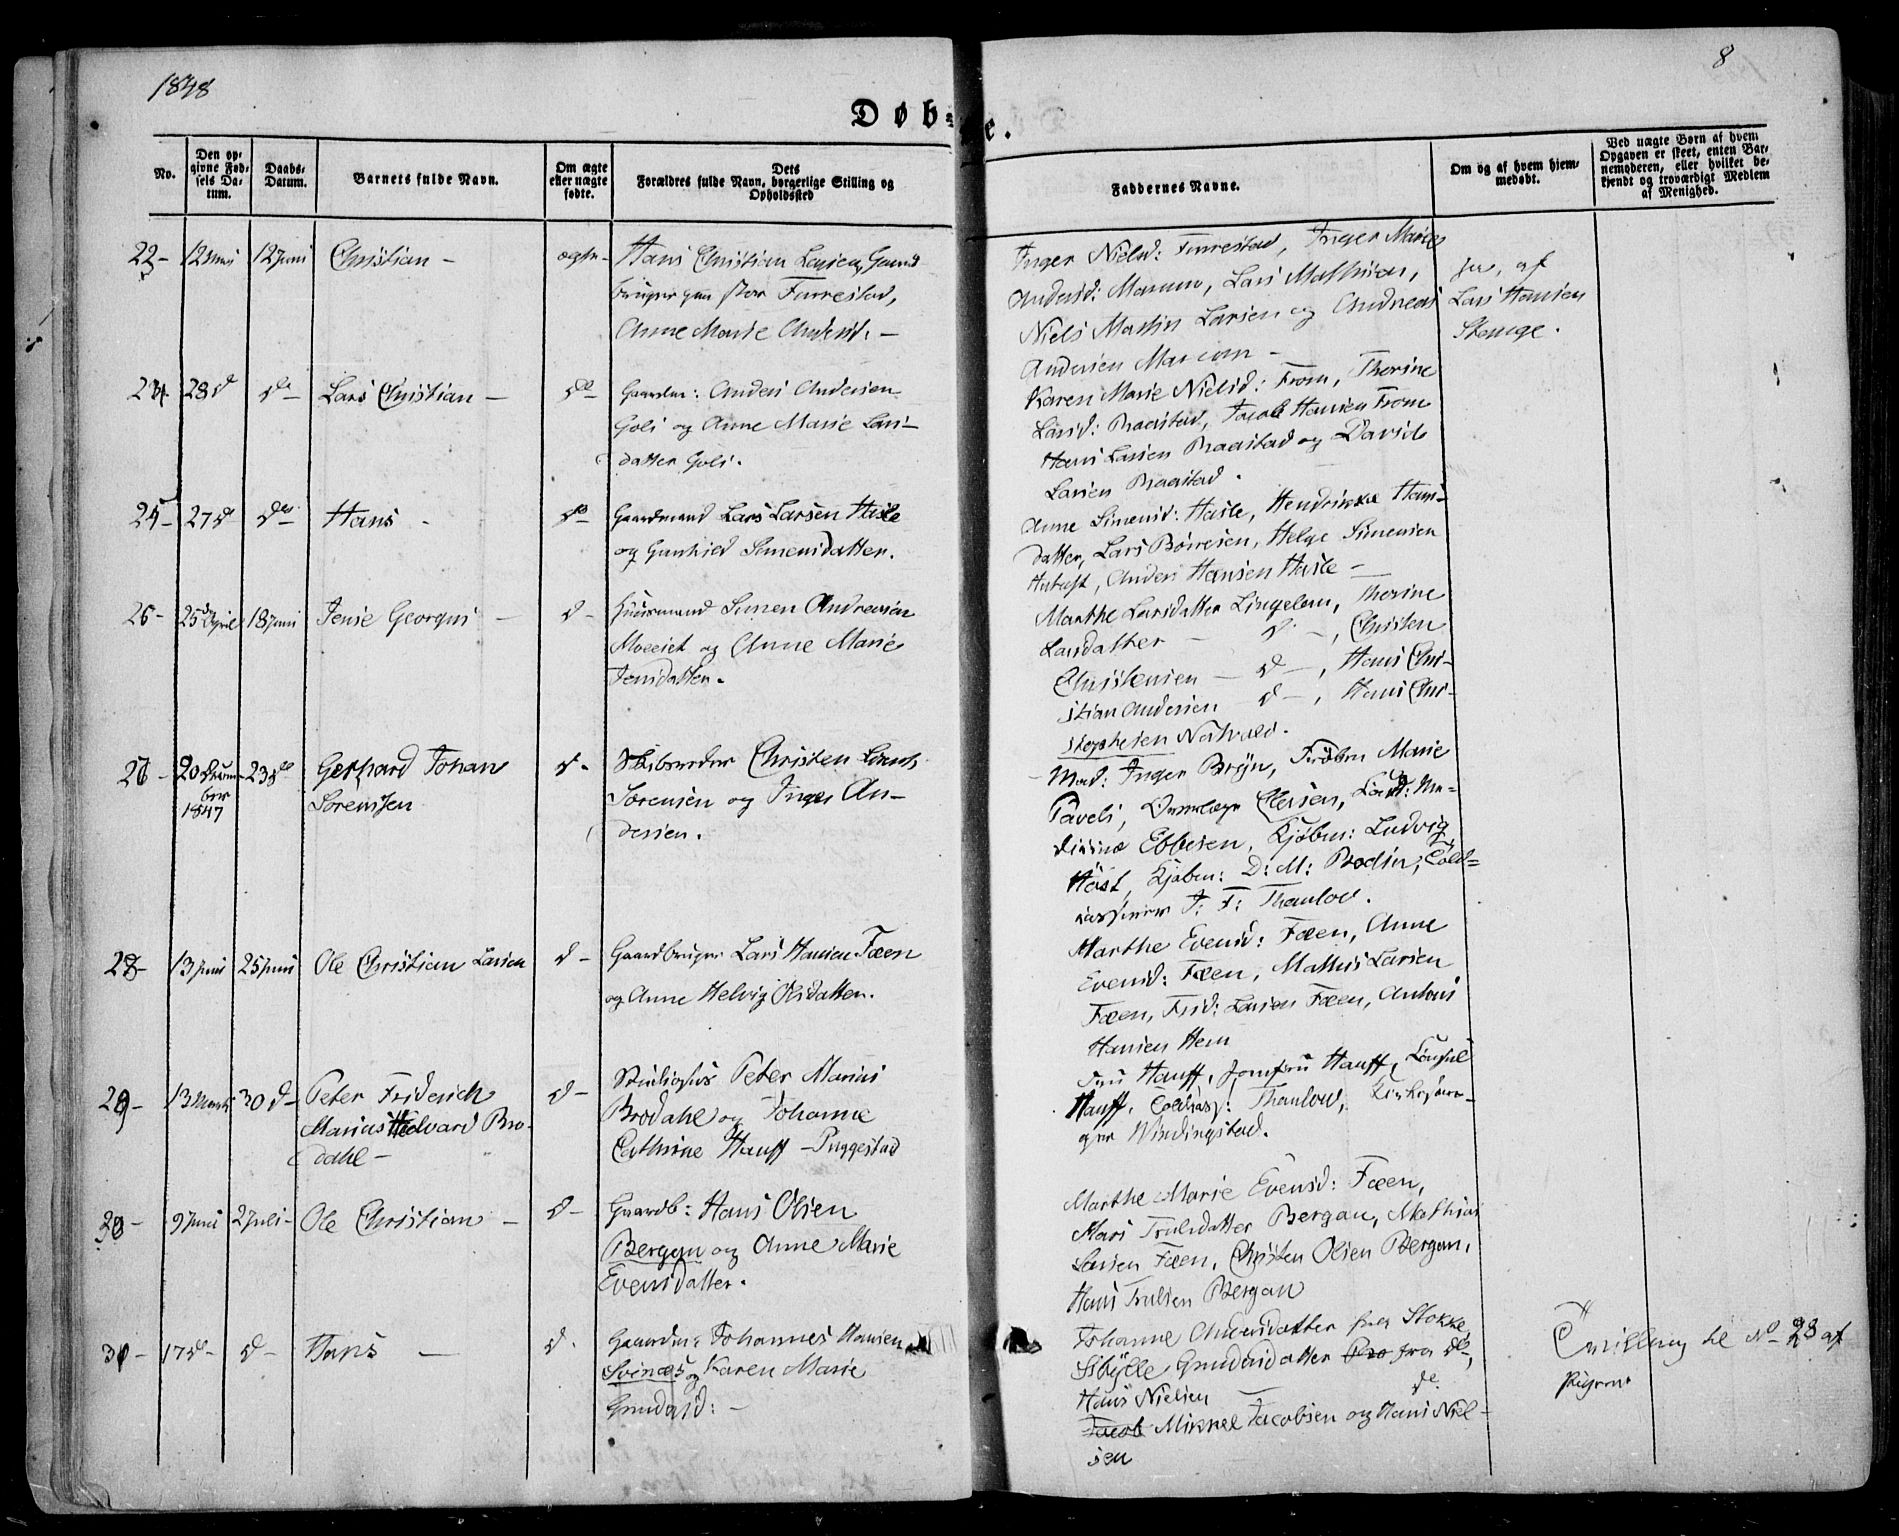 1848
8
Døbte.
No.
Den op-
givne Fød-
sels Da-
tum.
Daabs-
Datum.
Barnets fulde Navn.
Om ægte
eller uægte
fødte.
Dets
Forældres fulde Navn, borgerlige Stilling og
Opholdssted
Faddernes Navne.
Om og af hvem hjem-
medøbt.
Ved uægte Børn af hvem
Opgaven er skeet, enten Bar-
nemoderen, eller hvilket be-
kjendt og troværdigt Medlem
af Menighed.
22 - 12 12 Juni Christian - ægte - Hans Christian Larsen, Gaard
bruger paa Furrestad,
Anne Marie Andersd. -
Inger Nielsd: Furrestad, Inger Marie
Andersd: Marum, Lars Mathisen,
Niels Martin Larsen og Andreas
Andersen Marum -
ja, af
Lars Hansen
Stenge.
28 d do - Lars Christian - do Gaardm: Anders Andersen
Goli og Anne Marie Lars-
datter Goli.
Karen Marie Nielsd: From, Thorine
Larsd: Raastad, Jacob Hansen From
Hans Larsen Raastad og David
Larsen Raastad.
25 - 27 d do Hans - do Gaardmand Lars Larsen Hasle
og Gunhild Simensdatter.
Anne Simensd: Hasle, Hendrikke Hans-
datter, Lars Børresen, Helge Simensen
Anders Hansen Hasle -
26 - 25 April 18 Juni Jens Georgius - d - Huusmand Simen Andreasen
og Anne Marie
Jensdatter.
Marthe Larsdatter Lingelem, Thorine
Larsdatter - d -, Christen
Christensen - d -, Hans Chri-
stian Andersen - d -, Hans Chri-
stophersen
27 - 20 Decem- 23 do Gerhard Johan d - Skibsreder Christen
ber
1847
Sørensen
Sørensen og Inger An-
dersen.
Mad: Inger Bryn, Frøken Marie
Paveli, Ellersen,
Ebbesen, Kjøbm: Ludvig
Høst, Kjøbm: D: M: Bodin, Told-
kasserer J: F: Thaulow.
28 - 13 Juni 25 Juni Ole Christian Larsen d - Gaardbruger Lars Hansen Fæen
og Anne Helvig Olsdatter.
Marthe Evensd: Fæen, Anne
Evensd: Fæen, Mathis Larsen
Fæen, Frid: Larsen Fæen, Antons
Hansen Hem
29 - 13 Marts 30 d - Peter Friderich d - Peter Marius
Marius Hedvard Bro-
dahl -
Brodahl og Johanne
Cathrine Hauff - Puggestad
Fru Hauff, Jomfru Hauff, Consul
Hauff, Toldkass: Thaulow, Kirkesan-
ger Windingstad.
30 - 9 Juni 2 Juli - Ole Christian - d - Gaardb: Hans Olsen
Bergan og Anne Marie
Evensdatter.
Marthe Marie Evensd: Fæen,
Mari Trulsdatter Bergan, Mathias
Larsen Fæen, Christen Olsen Bergan,
Hans Trulsen Bergan
31 - 17 d - d - Hans - d. Gaardm: Johannes Hansen
Svinæs og Karen Marie
Johanne Andersdatter fra Stokke
Sibylle fra do,
Hans Nielsen do
Jacob Mikkel Jacobsen og Hans Niel-
sen
til No 23 af